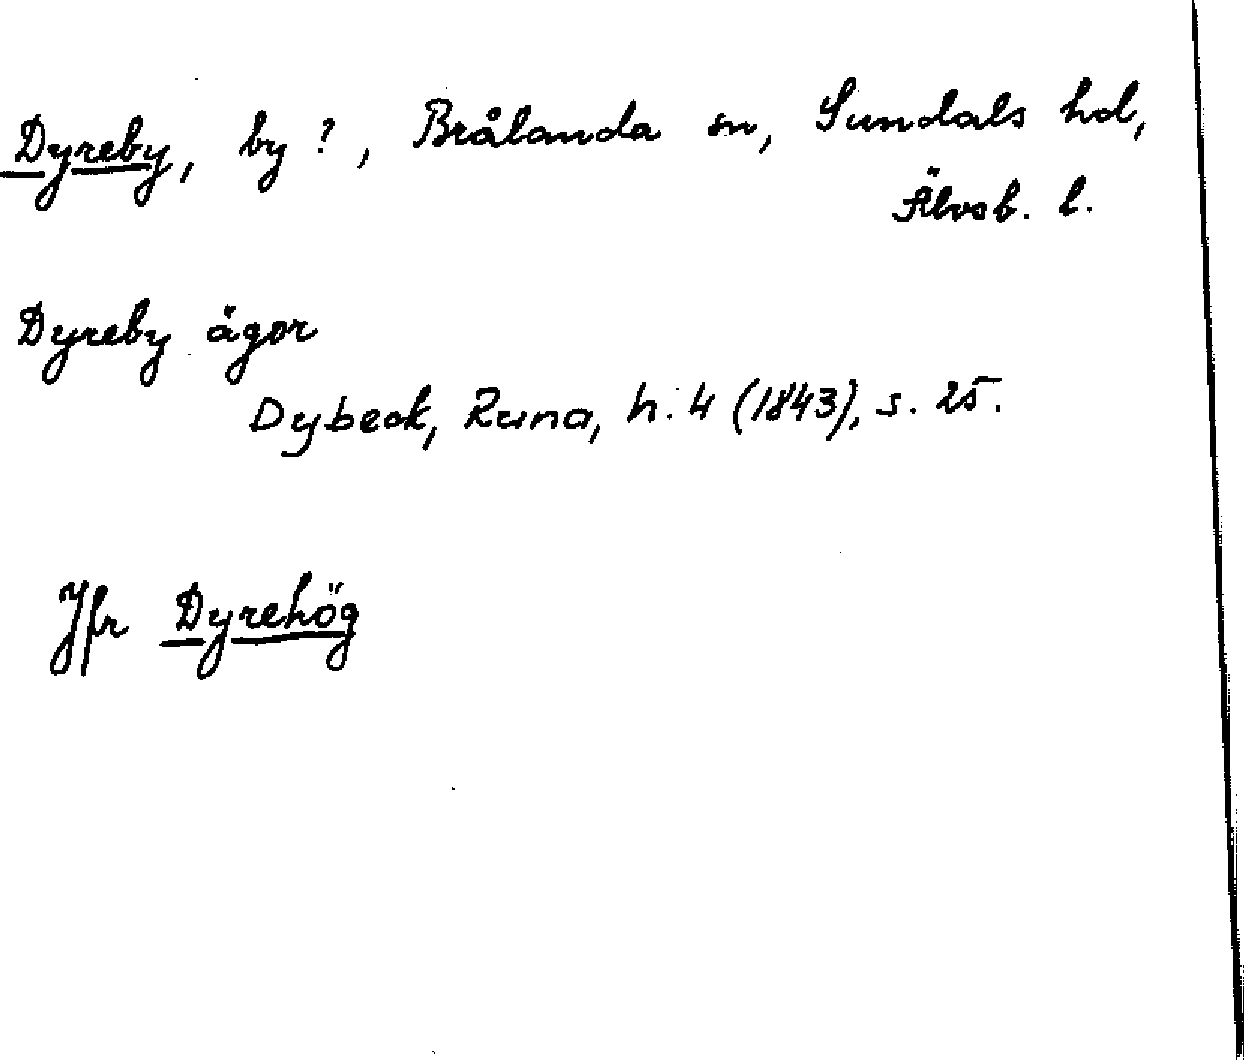 Dyreby, by?, Brålanda sn, Sundals hd,
Älvsb. l.
Dyreby ägor
Dybeck, Runa, h. 4 (1843), s. 25.
Jfr Dyrehög